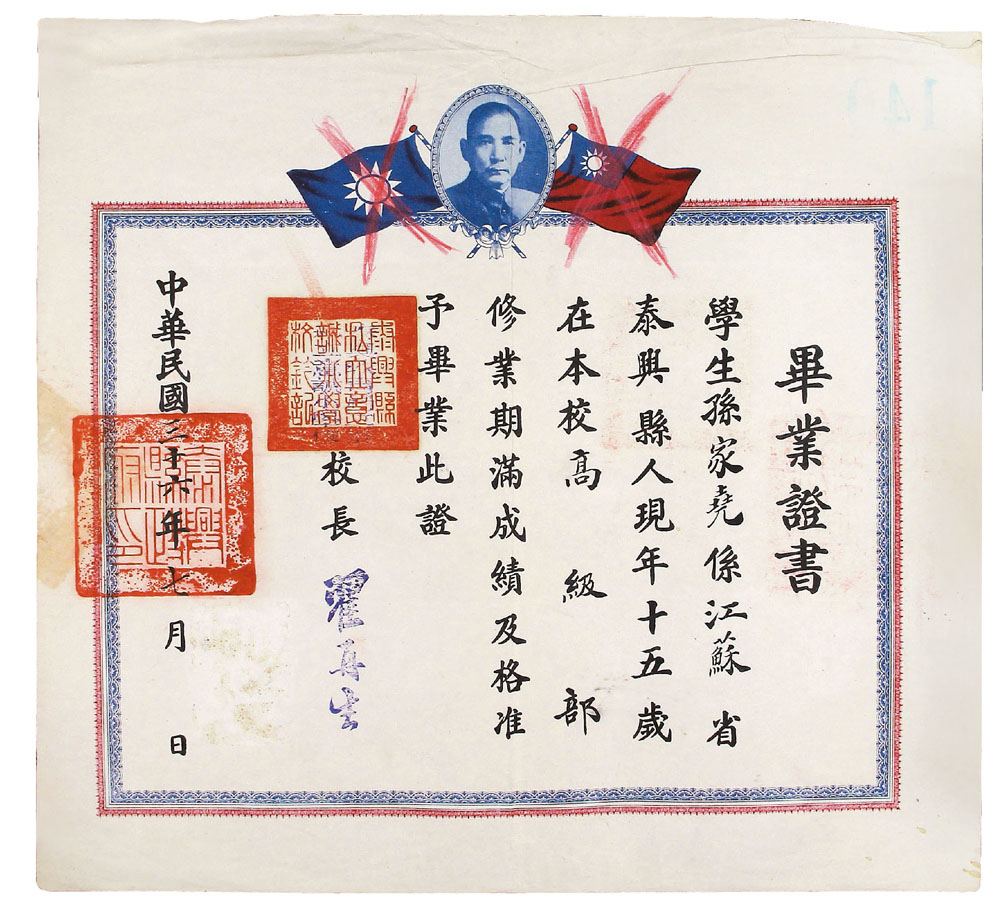 畢業證書
學生孫家堯係江蘇省
泰興縣人現年十五歲
在本校高級部
修業期滿成績及格准
予畢業此證
校長 翟真生
中華民國三十六年七月 日
140